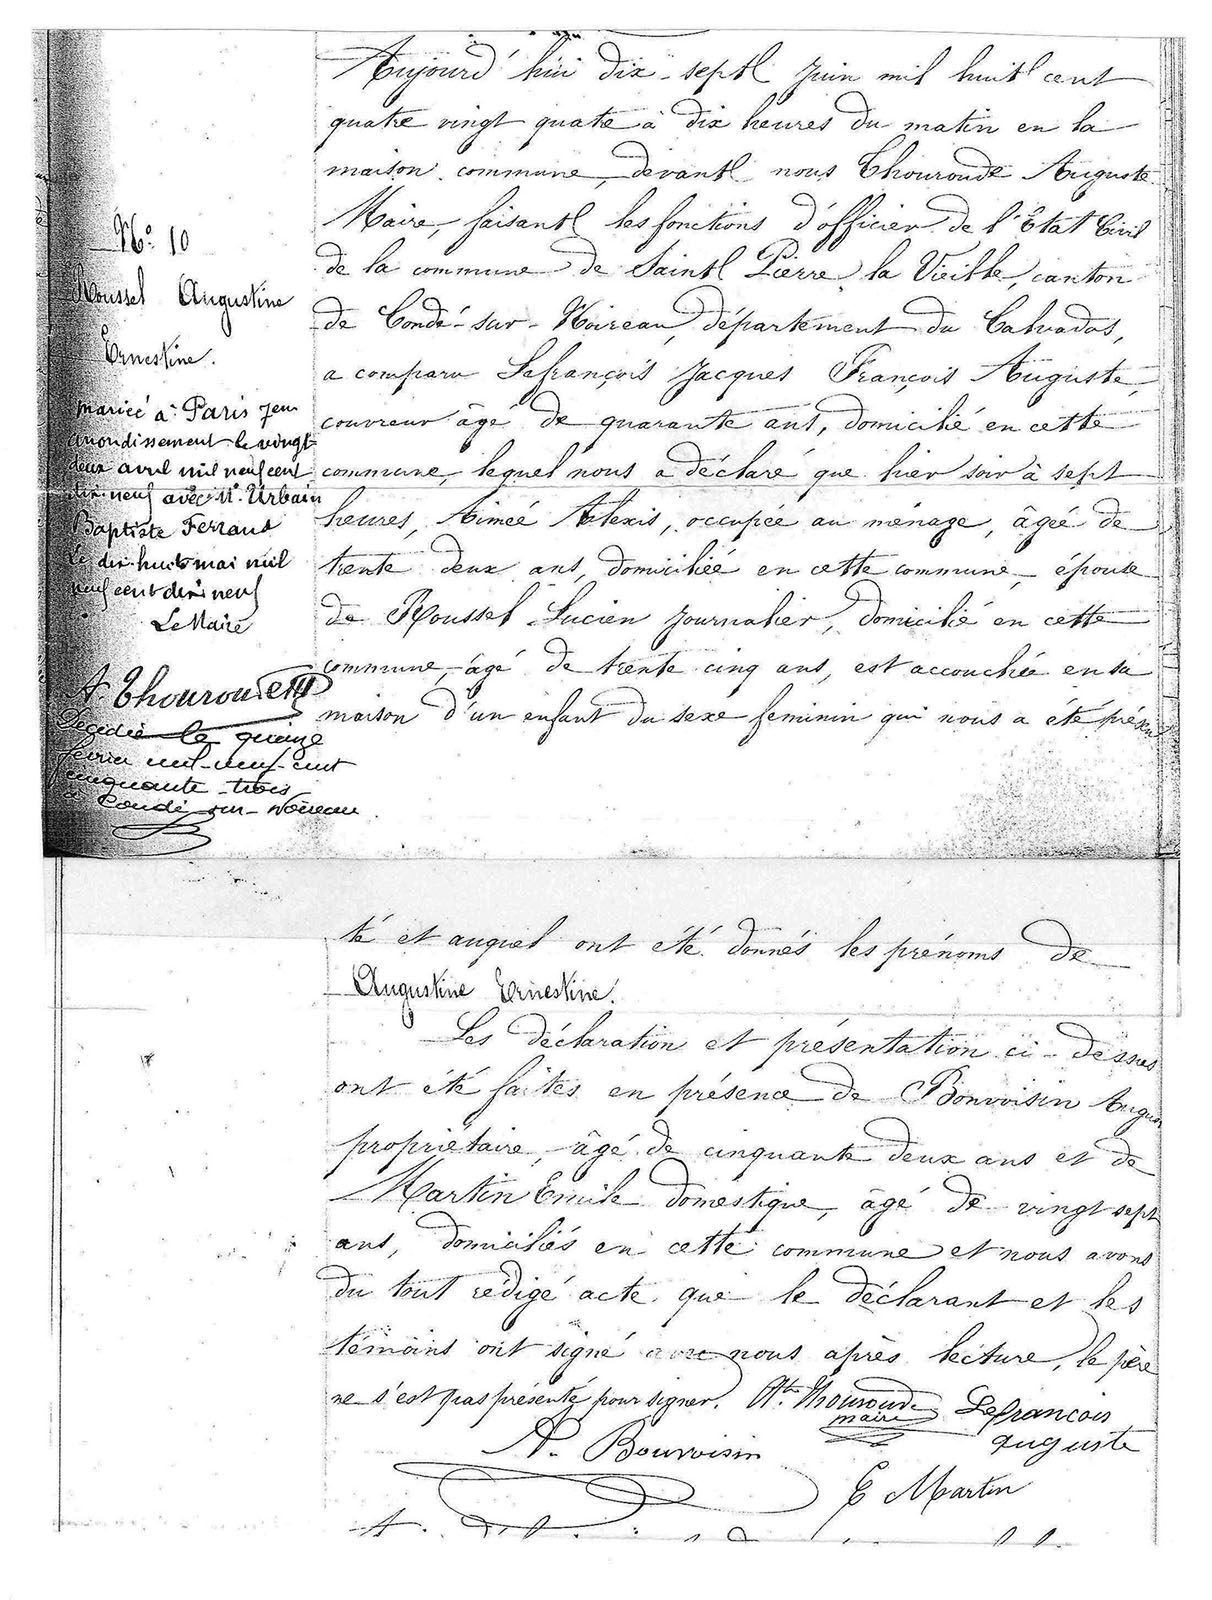 N.o 10
Roussel Augustine
Ernestine.
mariée à Paris 7em
arrondissement le vingt
deux avril mil neuf cent
dix neuf avec Mr. Urbain
Baptiste Ferraud
Le dix huit mai mil
neuf cent dix neuf
Le Maire
A. Thouroude
Décédée le quinze
février mil neuf cent
cinquante trois
à Condé sur Noireau
Aujourd'hui dix-sept Juin mil huit cent
quatre vingt quatre à dix heures du matin en la
maison commune, devant nous Thouroude Auguste
Maire, faisant les fonctions d'officier de l'Etat Civil
de la commune de Saint Pierre la Vieille, canton
de Condé-sur-Noireau, département du Calvados,
a comparu Lefrançois Jacques François Auguste,
couvreur âgé de quarante ans, domicilié en cette
commune, lequel nous a déclaré que hier soir à sept
heures, Aimée Alexis, occupée au ménage, âgée de
trente deux ans, domiciliée en cette commune, épouse
de Roussel Lucien journalier, domicilié en cette
commune, âgé de trente cinq ans, est accouchée en sa
maison d'un enfant du sexe feminin qui nous a été présen
té et auquel ont été donnés les prénoms de
Augustine Ernestine.
Les déclaration et présentation ci-dessus
ont été faites en présence de Bonvoisin Auguste
propriétaire, âgé de cinquante deux ans et de
Martin Emile domestique, âgé de vingt sept
ans, domiciliés en cette commune et nous avons
du tout rédigé acte que le déclarant et les
témoins ont signé avec nous après lecture, le père
ne s'est pas présenté pour signer. Ate Thouroude
maire
Lefrancois
auguste
A. Bonvoisin
E Martin